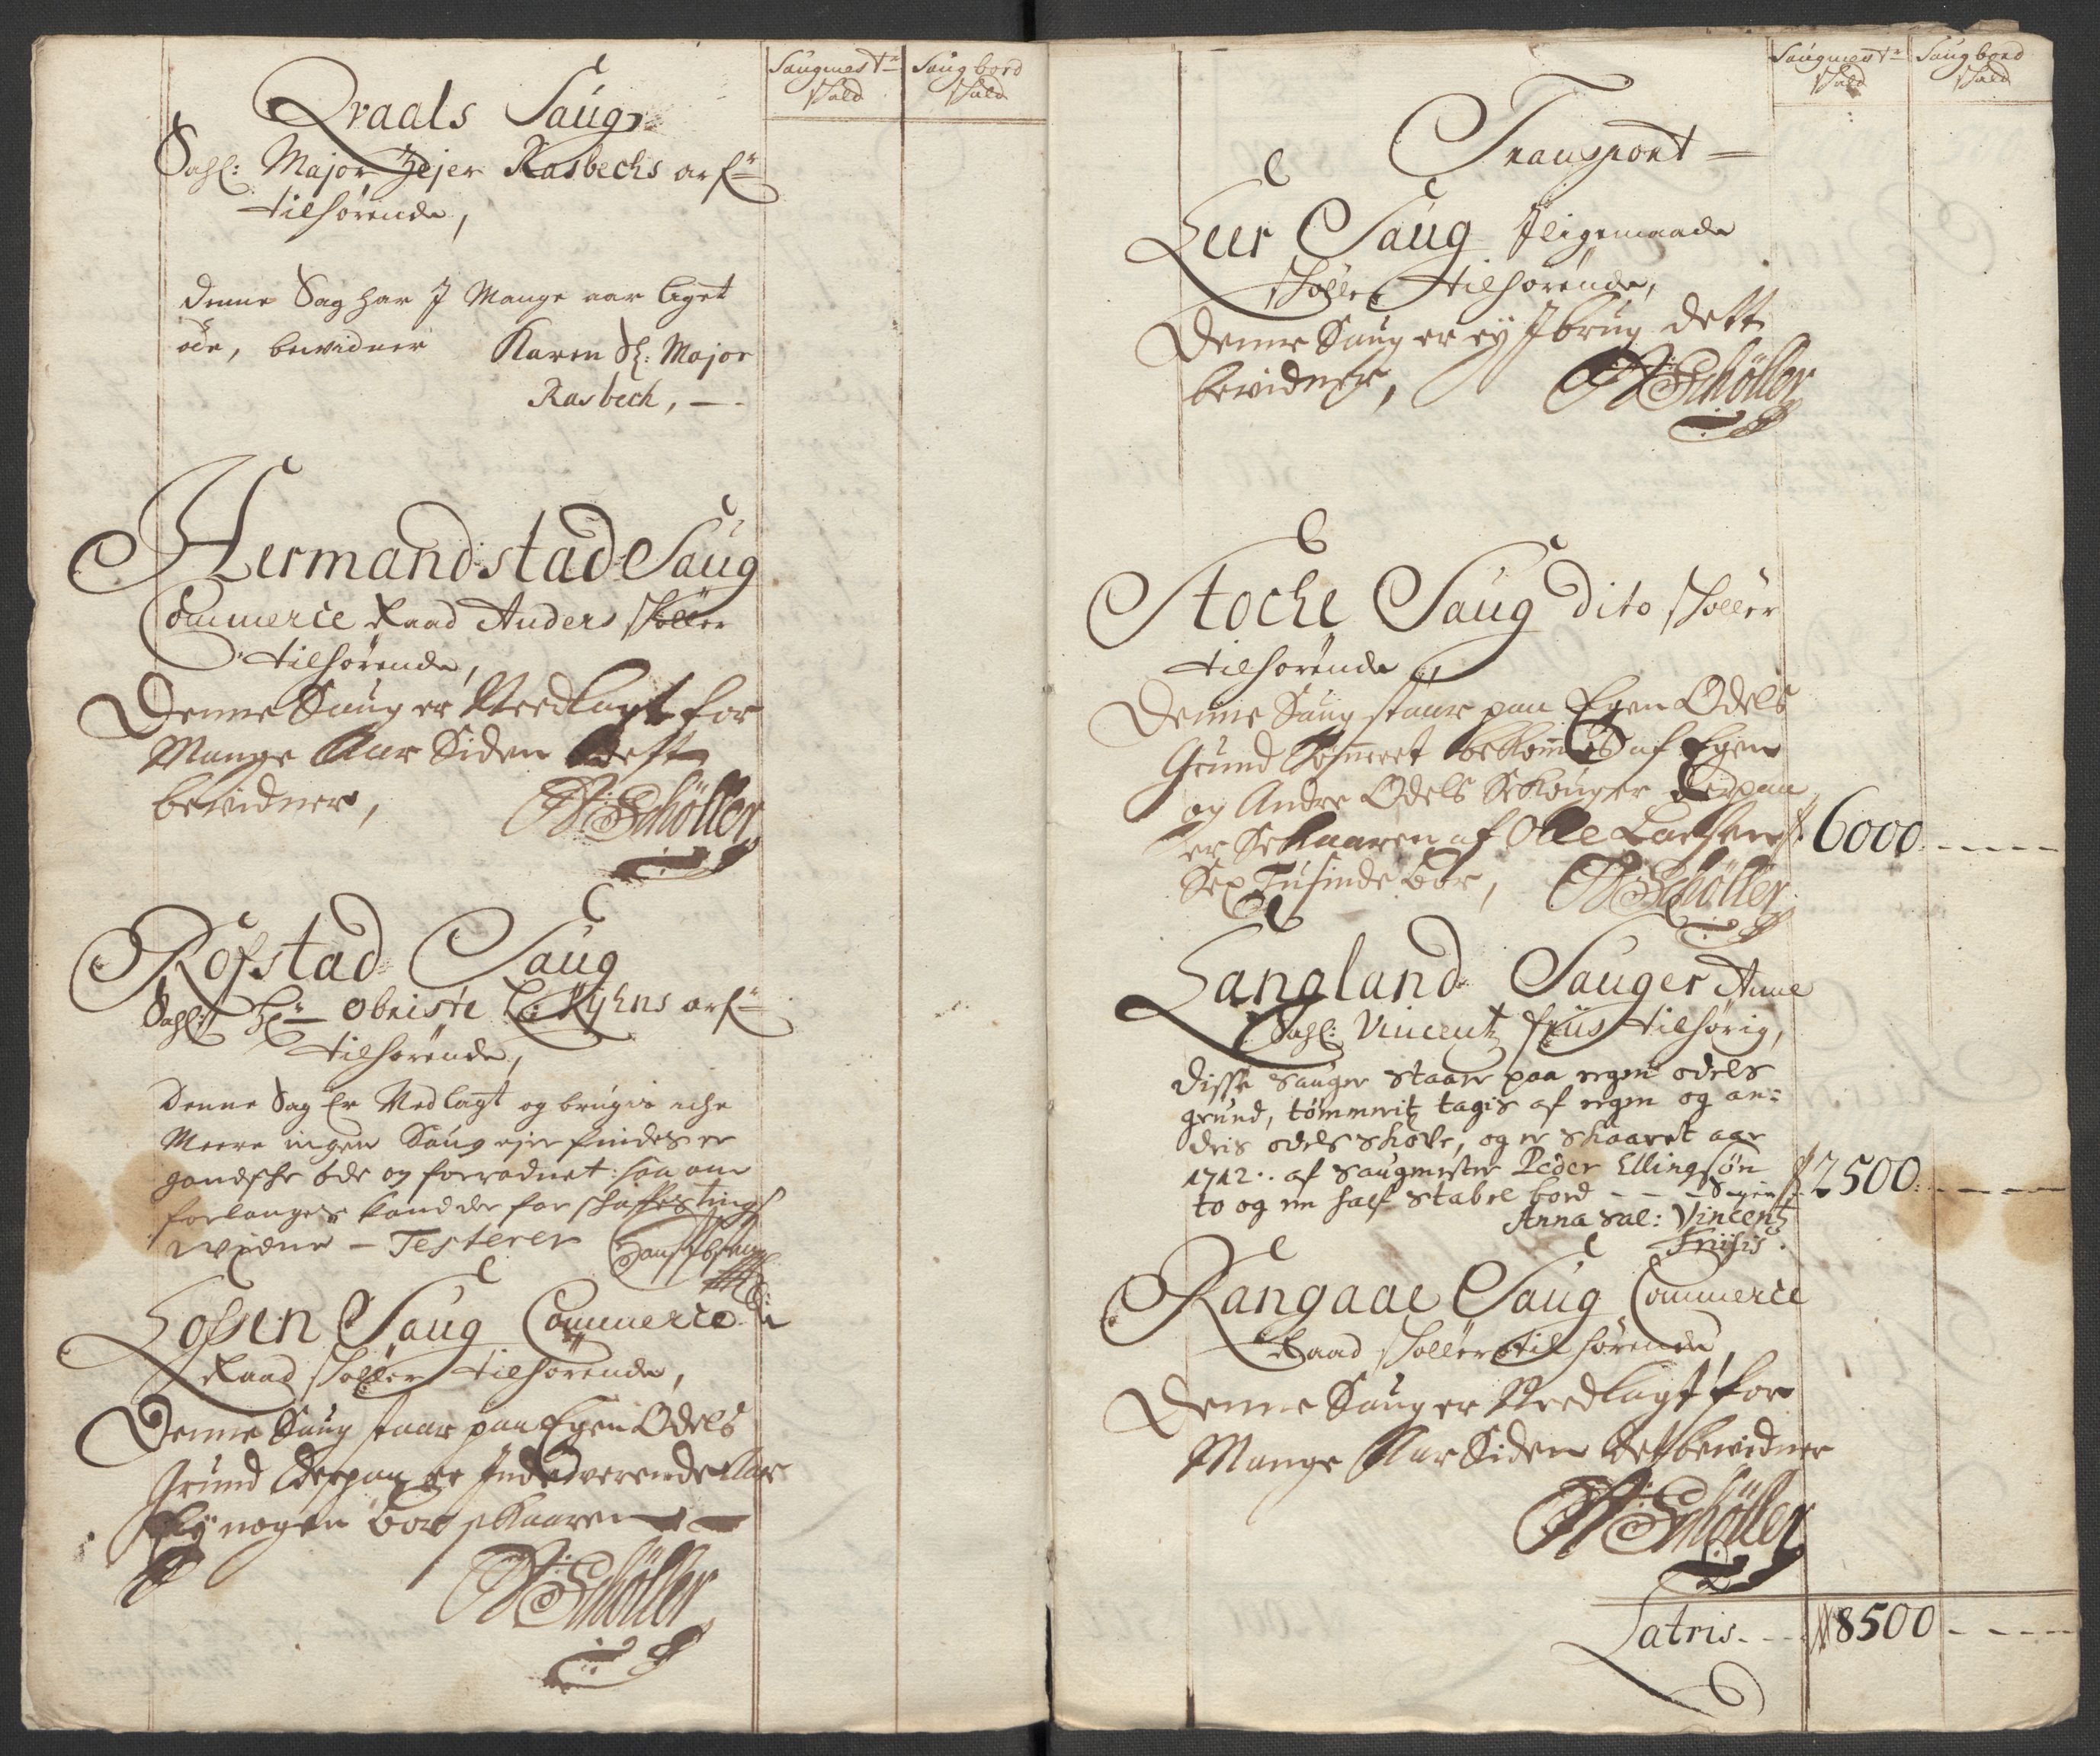 Saugmest:
Skuld
Saugbord
Skuld
Qvaals Saug
Sahl: Major Zejer Rasbechs arf:
tilhørende,
denne Sag har J Mange aar liget
øde, bevidner Karen Sl: Major
Rasbech, —
Hermandstad Saug
Commerce Raad Anders Skøller
tilhørende,
Denne Saug er Nedlagt for
Mange Aar Siden dette
bevidner,
A: Schöller
Rofstad Saug
Sahl: Hr: Obriste Kyhns arf:
tilhørende,
Denne Sag Er Nedlagt og brugis iche
Meere ingen Saug eier findes er
gandsche øde og forradnet: saa om
forlanges kand der for skaffes tings
widne – Testerer
Lofsen Saug Commerce
Raad Skøller tilhørende,
Denne Saug staar paa Egen Odels
Grund Derpaa er Indeverende Aar
Ey nogen bord skaaren
A: Schöller
Saugmest:
Skuld
Saugbord
Skuld
Transport
Leer Saug Jligemaade
Skøller tilhørende,
Denne Saug er ey J brug dette
bevidner,
A: Schöller
Stoche Saug Dito Skøller
tilhørende,
Denne Saug staar paa Egen Odels
Grund Tømeret bekomes af Egen
og Andre Odels Skouger Derpaa
er Skaaren af Olle Larsen 6000
Sex Tusinde bor,
A: Schöller
Langland Sauger Anne
Sahl: Vincentz friis tilhørig,
Disse Sauger Staar paa egen odels
grund, tømmerit tagis af egen og an:
dris odels skove, og er skaaret aar
1712. af Saugmester Peder Ellingsøn
to og en half stabel bord – – Siger 2500
Anna Sal: Vincentz
Friisis.
Rangaae Saug Commerce
Raad Skøller tilhørende,
Denne Saug er Nedlagt for
Mange Aar Siden Det bevidner
A: Schöller
Latris. 8500